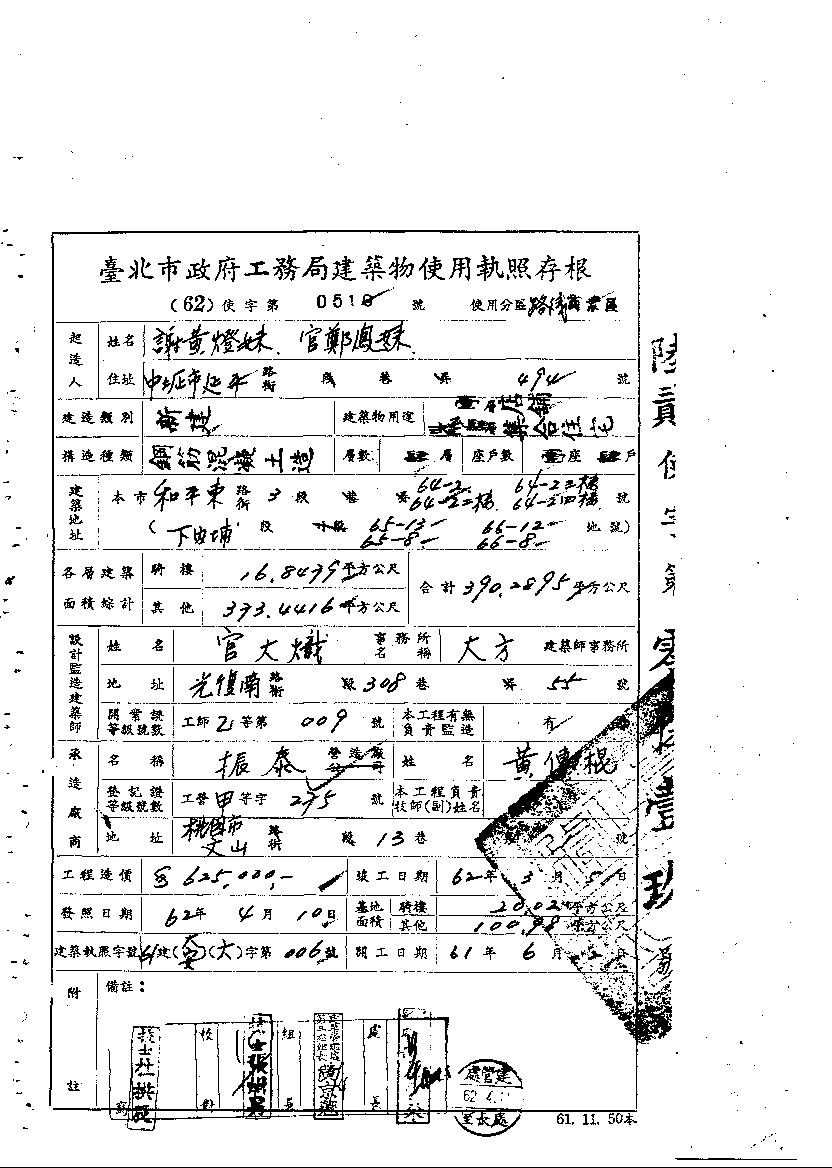 臺北市政府工務局建築物使用執照存根
(62) 使字第 0519 號 使用分區 路線商業區
起造人 姓名 謝黃燈妹、官鄭鳳妹
住址 中坜市延平 路街 段 巷 弄 494 號
建造類別 新建 建築物用途 壹層店鋪 集合住宅
構造種類 鋼筋混凝土造 層數 肆層 座戶數 壹座肆戶
建築地址 本市 和平東 路街 3 段 巷 弄 64-2 64-2二樓 64-2三樓 64-2四樓 號
(下内埔 段 小段 65-13 66-12 65-8 66-8 地號)
各層建築面積綜計 騎樓 16.8479平方公尺 合計 390.2895平方公尺
其他 373.4416平方公尺
設計監造建築師 姓名 官大熾 事務所名稱 大方 建築師事務所
地址 光復南 路街 段 308 巷 弄 55 號
開業證等級號數 工師 乙 等第 009 號 本工程有無負責監造 有
承造廠商 名稱 振泰 營造廠公司 姓名 黃傳棍
登記證等級號數 工營 甲 等字 275 號 本工程負責技師(副)姓名
地址 桃園市文山 路街 段 13 巷 號
工程造價 625,000,- 竣工日期 62年 3月 5日
發照日期 62年 4月 10日 基地面積 騎樓 20.02平方公尺
其他 100.98平方公尺
建築執照字號 61建(大安)(大)字第 006號 開工日期 61年 6月 日
附註 備註：
校對 組長 處長
建管處
62.4.
處長室
61. 11. 50本
陸貳使字第零伍壹玖號